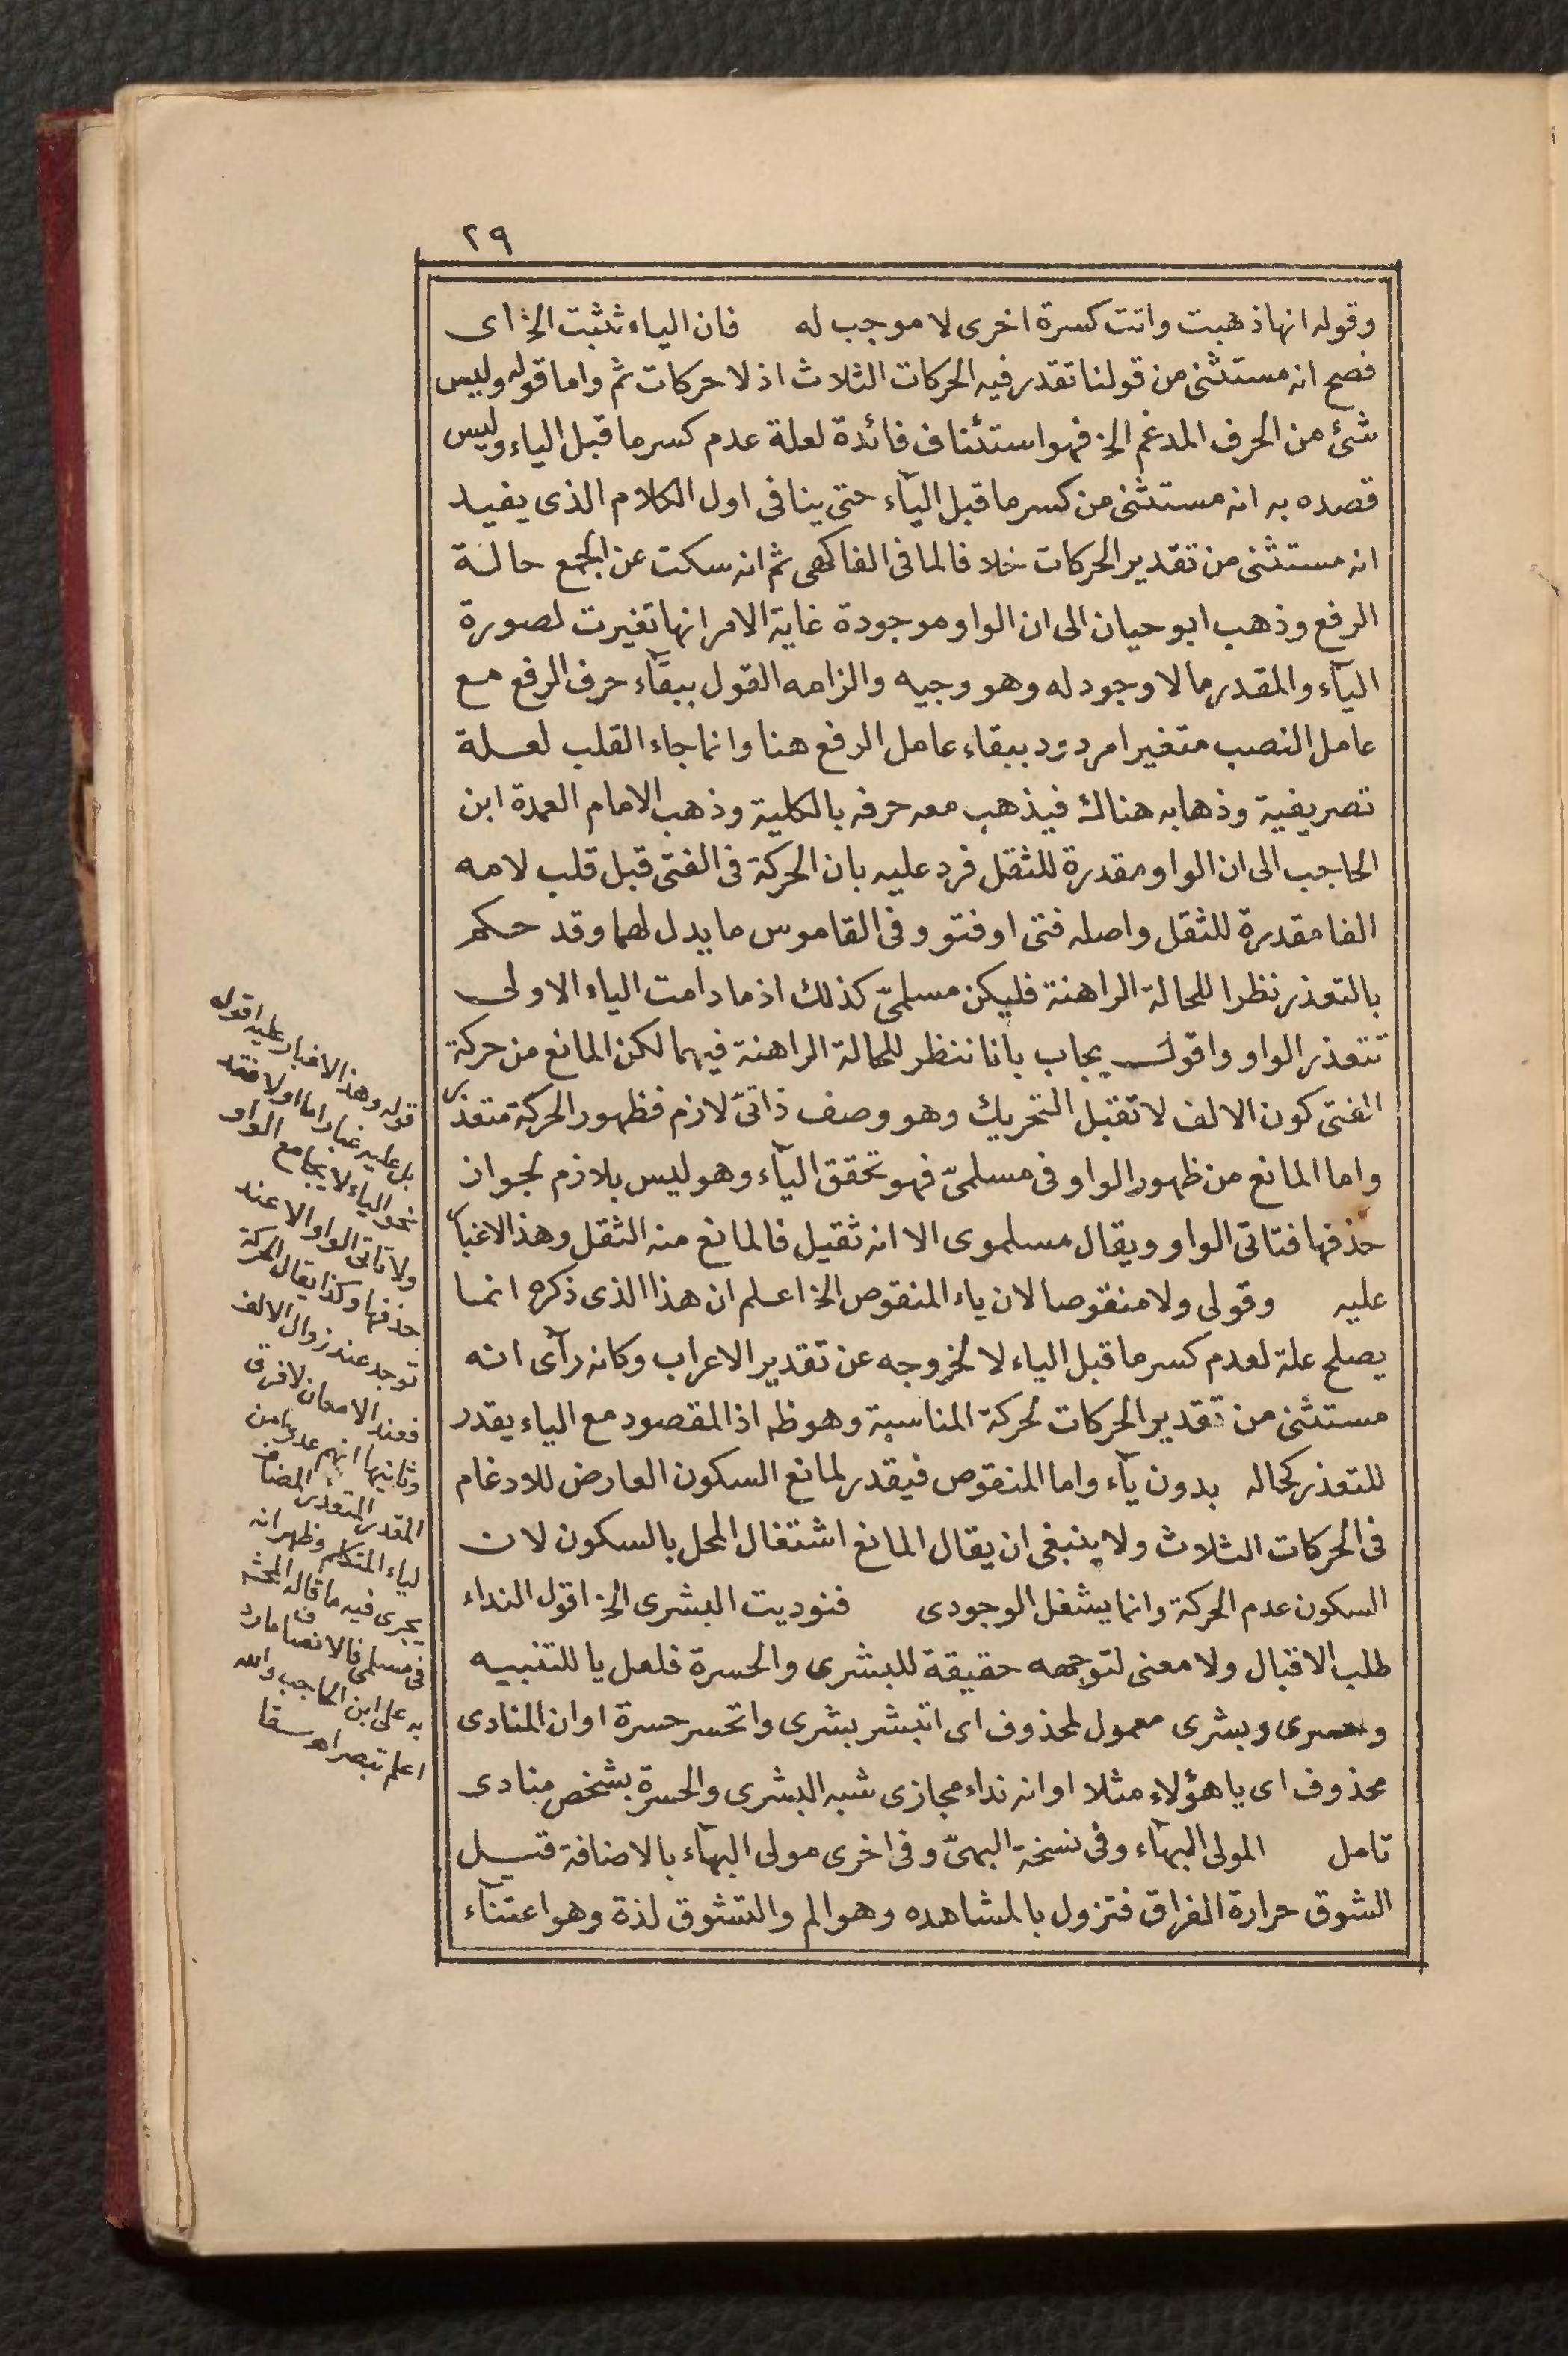 ٢٩
وقوله انها ذهبت واتت كسرة اخرى لا موجب له فان الياء تثبت الخ اى
فصح انه مستثنى من قولنا تقدر فيه الحركات الثلاث اذ لا حركات ثم واما قوله وليس
شئ من الحرف المدغم الخ فهو استئناف فائدة لعلة عدم كسر ما قبل الياء وليس
قصده به انه مستثنى من كسر ما قبل اليآء حتى ينافى اول الكلام الذى يفيد
انه مستثنى من تقدير الحركات خلافا لما فى الفاكهى ثم انه سكت عن الجمع حالة
الرفع وذهب ابو حيان الى ان الواو موجودة غاية الامر انها تغيرت لصورة
اليآء والمقدر ما لا وجود له وهو وجيه والزامه القول ببقآء حرف الرفع مع
عامل النصب متغيرا مردود ببقاء عامل الرفع هنا وانما جاء القلب لعلة
تصريفية وذهابه هناك فيذهب معه حرفه بالكلية وذهب الامام العمدة ابن
الحاجب الى ان الواو مقدرة للثقل فرد عليه بان الحركة فى الفتى قبل قلب لامه
الفا مقدرة للثقل واصله فتى او فتو وفى القاموس ما يدل لهما وقد حكم
بالتعذر نظرا للحالة الراهنة فليكن مسلمىّ كذلك اذ ما دامت الياء الاولى
تتعذر الواو واقول يجاب بانا ننظر للحالة الراهنة فيهما لكن المانع من حركة
الفتى كون الالف لا تقبل التحريك وهو وصف ذاتىّ لازم فظهور الحركة متعذر
واما المانع من ظهور الواو فى مسلمىّ فهو تحقق اليآء وهو ليس بلازم لجواز
حذفها فتاتى الواو ويقال مسلموى الا انه ثقيل فالمانع منه الثقل وهذا لا غبار
عليه وقولى ولا منقوصا لان ياء المنقوص الخ اعلم ان هذا الذى ذكره انما
يصلح علة لعدم كسر ما قبل الياء لا لخروجه عن تقدير الاعراب وكانه رآى انه
مستثنى من تقدير الحركات لحركة المناسبة وهو ظه اذ المقصود مع الياء يقدر
للتعذر كحاله بدون يآء واما المنقوص فيقدر لمانع السكون العارض للادغام
فى الحركات الثلاث ولا ينبغى ان يقال المانع اشتغال المحل بالسكون لان
السكون عدم الحركة وانما يشغل الوجودى فنوديت البشرى الخ اقول النداء
طلب الاقبال ولا معنى لتوجهه حقيقة للبشرى والحسرة فلعل يا للتنبيه
وحسرى وبشرى معمول لمحذوف اى اتبشر بشرى واتحسر حسرة او ان المنادى
محذوف اى يا هؤلاء مثلا او انه نداء مجازى شبه البشرى والحسرة بشخص منادى
تامل المولى البهآء وفى نسخة البهىّ وفى اخرى مولى البهآء بالاضافة قيل
الشوق حرارة الفراق فتزول بالمشاهده وهو الم والتشوق لذة وهو اعتنآء
قوله وهذا لا غبار عليه اقول
بل عليه غبار اما اولا فقد
نحو الياء لا يجامع الواو
ولا تاتى الواو الا عند
حذفها وكذا يقال الحركة
توجد عند زوال الالف
فعند الامعان لا فرق
وثانيها انهم عدوا من
المقدر المتعذر المضاف
لياء المتكلم وظهر انه
يجرى فيه ما قاله المحشى
فى مسلمى فالانصاف ما رد
به على ابن الحاجب والله
اعلم تبصر اهـ سقا